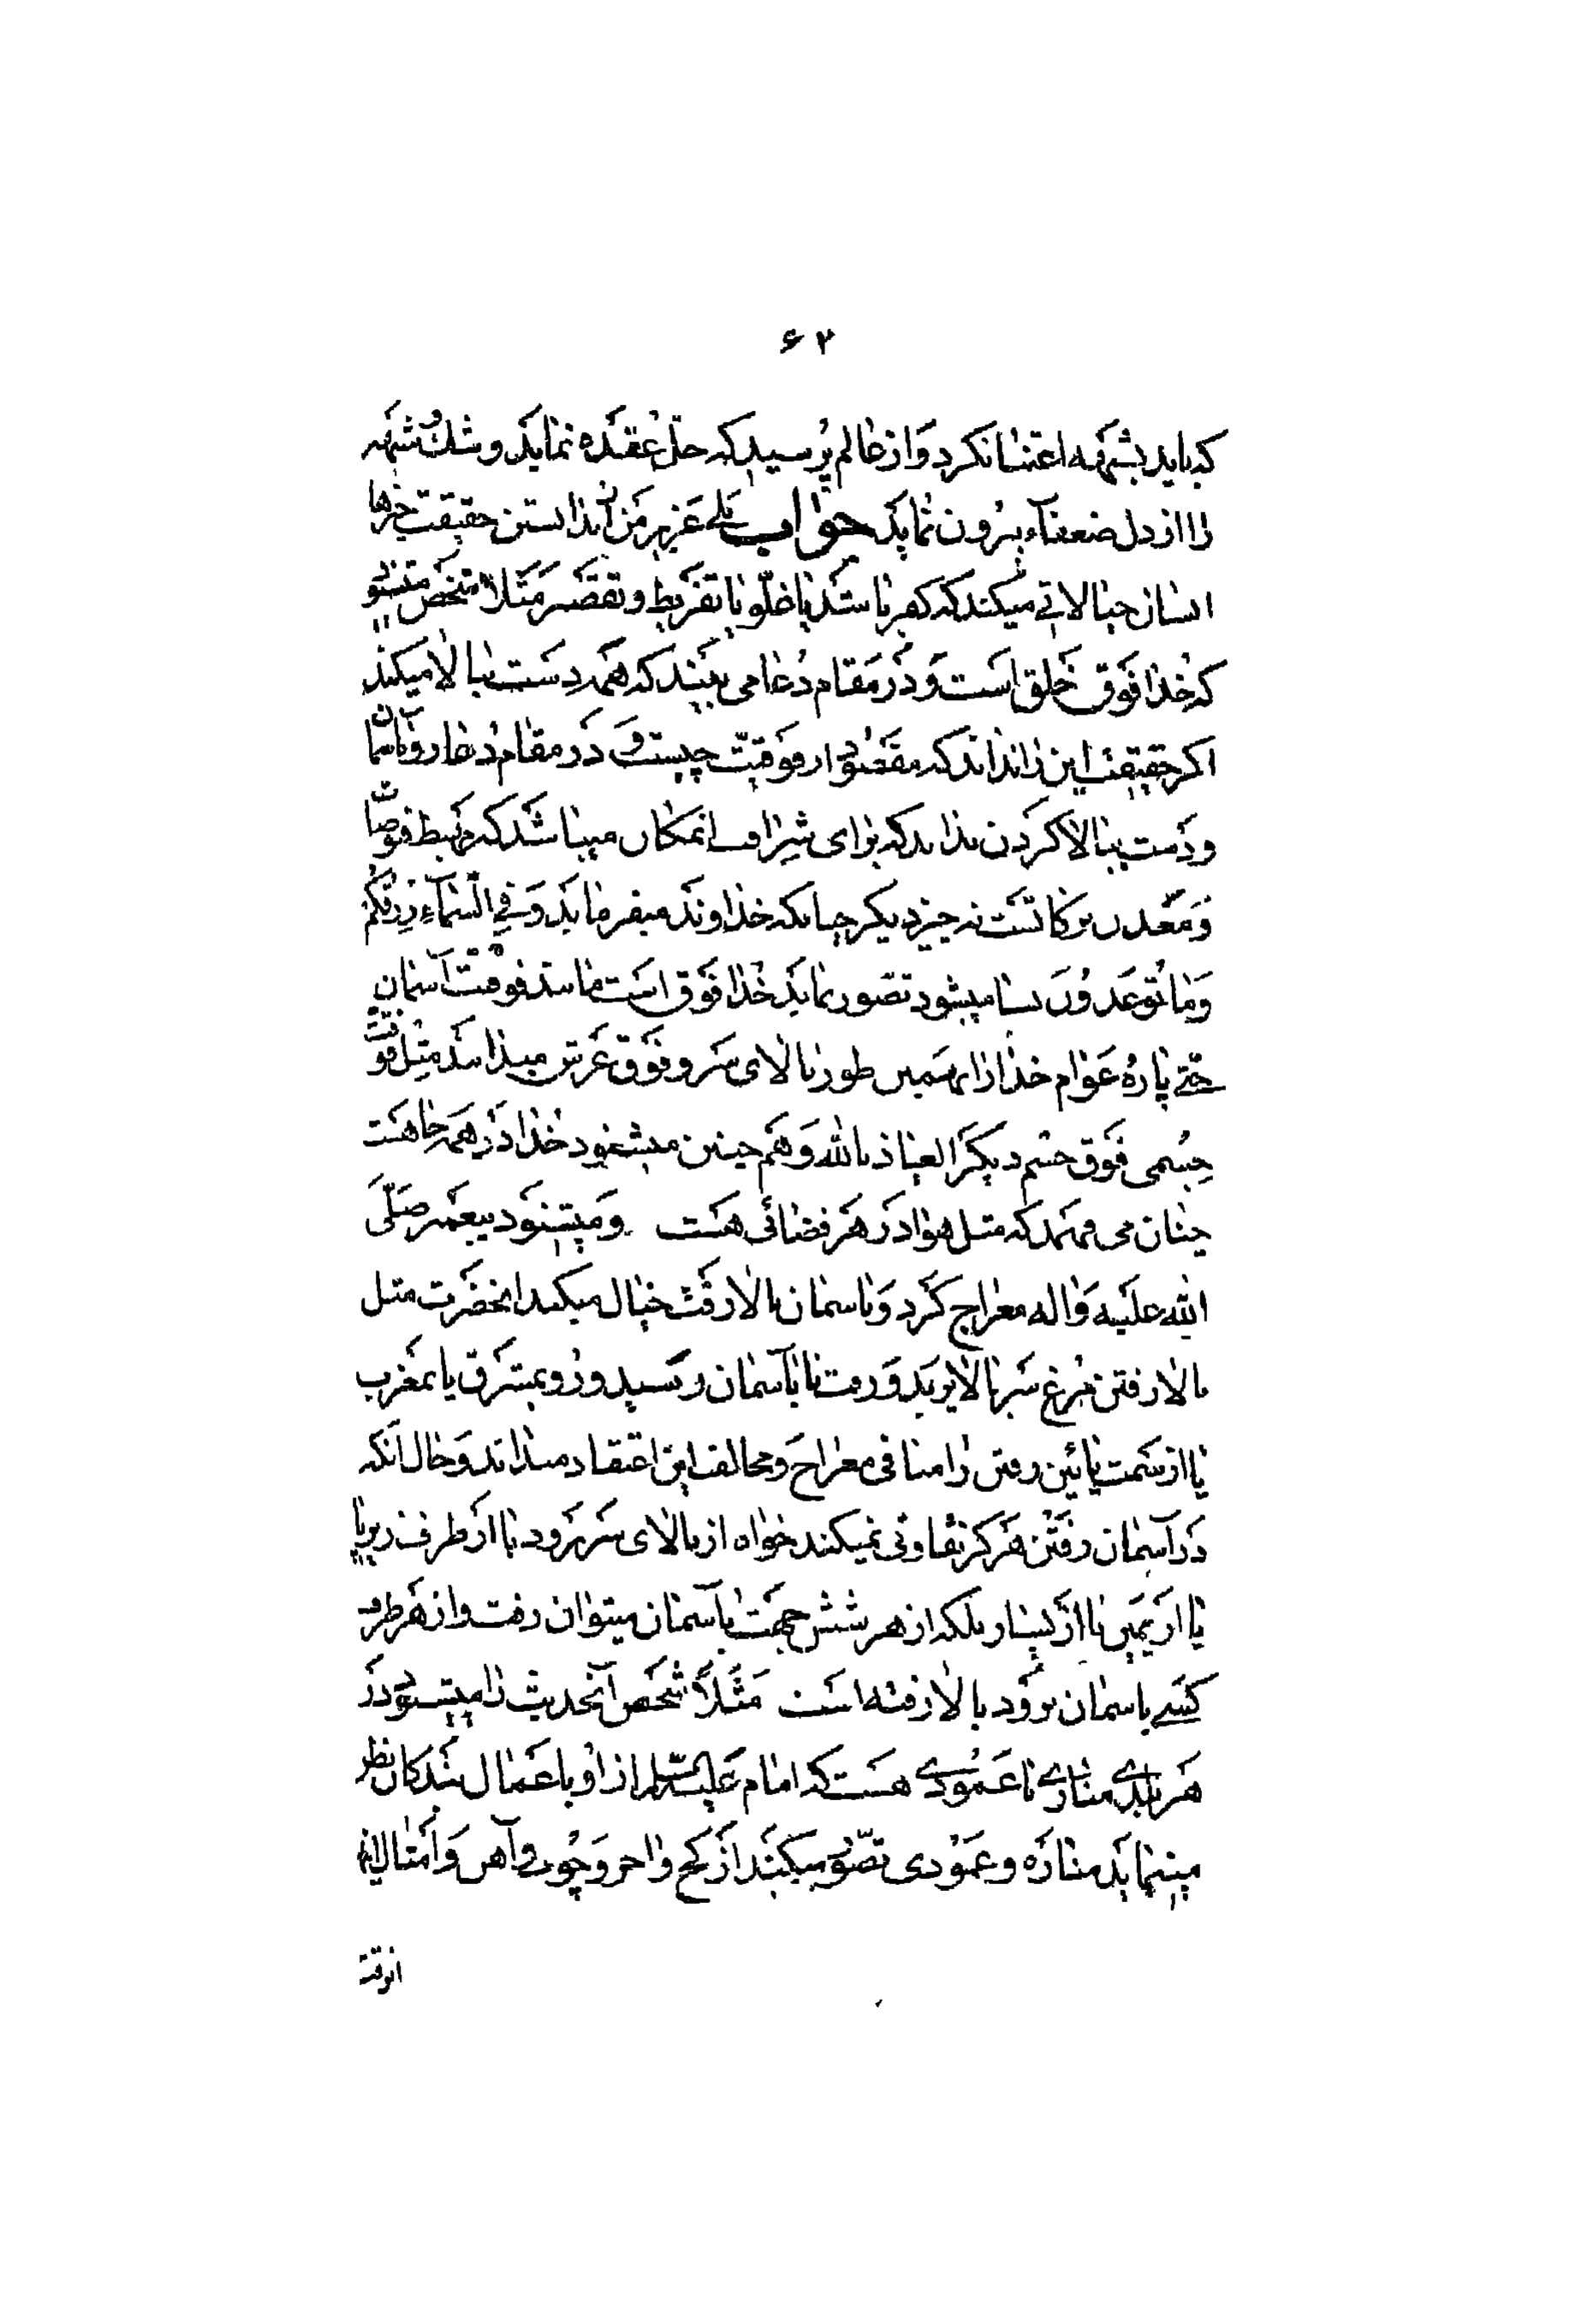 ۶۲
که باید بشبهه اعتنا نکرد و از عالم پرسید که حل عقده نماید و شک و شبهه
را از دل ضعفاء بیرون نماید جواب بلی عزیز من از ندانستن حقیقت چیزها
انسان خیالاتی میکند که کفر باشد یا غلو یا تفریط و تقصیر مثلا شخص میشنود
که خدا فوق خلق است و در مقام دعا می بیند که همه دست ببالا میکنند
اکر حقیقت این را نداند که مقصود از فوقیت چیست و در مقام دعا رو بآسمان
و دست ببالا کردن نداند که برای شرافت انمکان میباشد که مهبط فیوضات
و معدن برکاتست نه چیز دیکر چنانکه خداوند میفرماید و فی السمآء رزقکم
و ما توعدون بسا میشود تصور نماید خدا فوق است مانند فوقیت آسمان
حتی پارۀ عوام خدا را از همین طور بالای سر و فوق عرش میدانند مثل فوقیت
جسمی فوق جسم دیکر العیاذ بالله و هم چنین میشنود خدا در همه جا هست
چنان می فهمد که مثل هوا در هر فضائی هست و میشنود پیغمبر صلی
الله علیه و اله معراج کرد و باسمان بالا رفت خیال میکند انحضرت مثل
بالا رفتن مرغ سر بالا پرید و رفت تا بآسمان رسید و رو بمشرق یا بمغرب
یا از سمت پائین رفتن را منافی معراج و مخالف این اعتقاد میداند و حال آنکه
در آسمان رفتن هرکز تفاوتی نمیکند خواه از بالای سر برود یا از طرف زیر پا
یا از یمین یا از یسار بلکه از هر شش جهت بآسمان میتوان رفت و از هر طرف
کسی باسمان برود بالا رفته است مثلاً شخص آنحدیث را میشنود در
هر بلدی مناری یا عمودی هست که امام علیه السلام از او باعمال بندکان نظر
مینماید مناره و عمودی تصور میکند از کچ و اجر و چوب و آهن و امثال اینها
انوقت